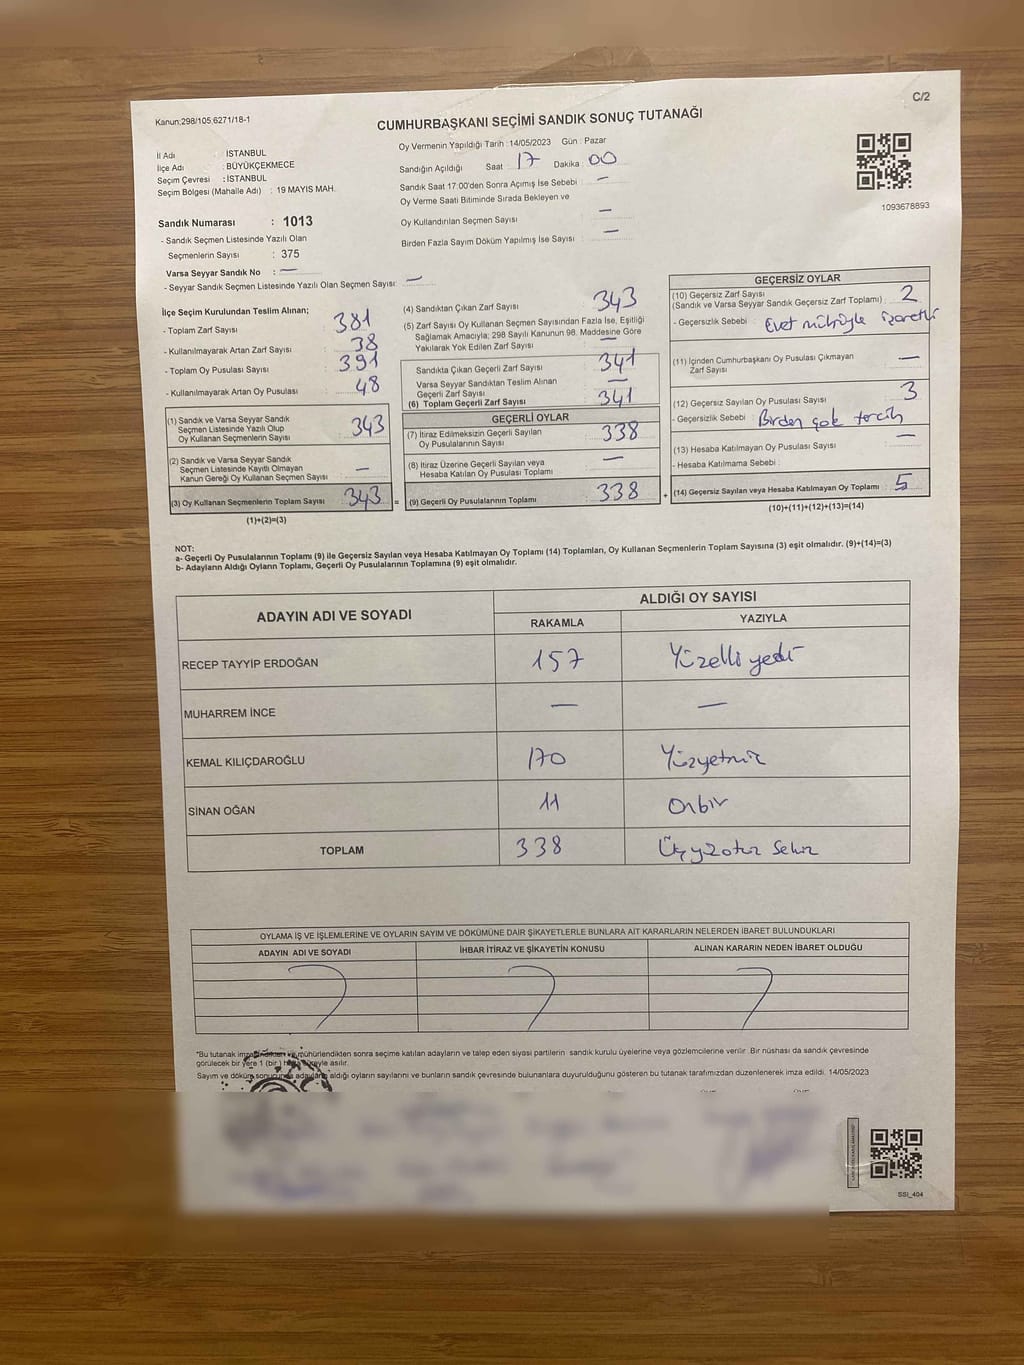 C/2
Kanun:298/105.6271/18-1
CUMHURBAŞKANI SEÇİMİ SANDIK SONUÇ TUTANAĞI
İl Adı : İSTANBUL
İlçe Adı : BÜYÜKÇEKMECE
Seçim Çevresi : İSTANBUL
Seçim Bölgesi (Mahalle Adı) : 19 MAYIS MAH.
Sandık Numarası : 1013
- Sandık Seçmen Listesinde Yazılı Olan
Seçmenlerin Sayısı : 375
Varsa Seyyar Sandık No : —
- Seyyar Sandık Seçmen Listesinde Yazılı Olan Seçmen Sayısı: —
Oy Vermenin Yapıldığı Tarih :14/05/2023 Gün : Pazar
Sandığın Açıldığı Saat : 17 Dakika : 00
Sandık Saat 17:00'den Sonra Açımış İse Sebebi : —
Oy Verme Saati Bitiminde Sırada Bekleyen ve
Oy Kullandırılan Seçmen Sayısı : —
Birden Fazla Sayım Döküm Yapılmış İse Sayısı : —
1093678893
İlçe Seçim Kurulundan Teslim Alınan;
- Toplam Zarf Sayısı : 381
- Kullanılmayarak Artan Zarf Sayısı : 38
- Toplam Oy Pusulası Sayısı : 391
- Kullanılmayarak Artan Oy Pusulası : 48
(1) Sandık ve Varsa Seyyar Sandık
Seçmen Listesinde Yazılı Olup
Oy Kullanan Seçmenlerin Sayısı : 343
(2) Sandık ve Varsa Seyyar Sandık
Seçmen Listesinde Kayıtlı Olmayan
Kanun Gereği Oy Kullanan Seçmen Sayısı : —
(3) Oy Kullanan Seçmenlerin Toplam Sayısı : 343 =
(1)+(2)=(3)
(4) Sandıktan Çıkan Zarf Sayısı : 343
(5) Zarf Sayısı Oy Kullanan Seçmen Sayısından Fazla İse, Eşitliği
Sağlamak Amacıyla; 298 Sayılı Kanunun 98. Maddesine Göre
Yakılarak Yok Edilen Zarf Sayısı : —
Sandıkta Çıkan Geçerli Zarf Sayısı : 341
Varsa Seyyar Sandıktan Teslim Alınan
Geçerli Zarf Sayısı : —
(6) Toplam Geçerli Zarf Sayısı : 341
GEÇERLİ OYLAR
(7) İtiraz Edilmeksizin Geçerli Sayılan
Oy Pusulalarının Sayısı : 338
(8) İtiraz Üzerine Geçerli Sayılan veya
Hesaba Katılan Oy Pusulası Toplamı : —
(9) Geçerli Oy Pusulalarının Toplamı : 338 +
GEÇERSİZ OYLAR
(10) Geçersiz Zarf Sayısı
(Sandık ve Varsa Seyyar Sandık Geçersiz Zarf Toplamı) : 2
- Geçersizlik Sebebi : Evet mührüyle işaretli
(11) İçinden Cumhurbaşkanı Oy Pusulası Çıkmayan
Zarf Sayısı : —
(12) Geçersiz Sayılan Oy Pusulası Sayısı : 3
- Geçersizlik Sebebi : Birden çok tercih
(13) Hesaba Katılmayan Oy Pusulası Sayısı : —
- Hesaba Katılmama Sebebi :
(14) Geçersiz Sayılan veya Hesaba Katılmayan Oy Toplamı : 5
(10)+(11)+(12)+(13)=(14)
NOT:
a- Geçerli Oy Pusulalarının Toplamı (9) ile Geçersiz Sayılan veya Hesaba Katılmayan Oy Toplamı (14) Toplamları, Oy Kullanan Seçmenlerin Toplam Sayısına (3) eşit olmalıdır. (9)+(14)=(3)
b- Adayların Aldığı Oyların Toplamı, Geçerli Oy Pusulalarının Toplamına (9) eşit olmalıdır.
ADAYIN ADI VE SOYADI ALDIĞI OY SAYISI
RAKAMLA YAZIYLA
RECEP TAYYİP ERDOĞAN 157 Yüzelli yedi
MUHARREM İNCE — —
KEMAL KILIÇDAROĞLU 170 Yüzyetmiş
SİNAN OĞAN 11 Onbir
TOPLAM 338 Üçyüzotuz Sekiz
OYLAMA İŞ VE İŞLEMLERİNE VE OYLARIN SAYIM VE DÖKÜMÜNE DAİR ŞİKAYETLERLE BUNLARA AİT KARARLARIN NELERDEN İBARET BULUNDUKLARI
ADAYIN ADI VE SOYADI İHBAR İTİRAZ VE ŞİKAYETİN KONUSU ALINAN KARARIN NEDEN İBARET OLDUĞU
*Bu tutanak imzalandıktan ve mühürlendikten sonra seçime katılan adayların ve talep eden siyasi partilerin sandık kurulu üyelerine veya gözlemcilerine verilir. Bir nüshası da sandık çevresinde
görülecek bir yere 1 (bir) hafta süreyle asılır.
Sayım ve döküm sonucunda adayların aldığı oyların sayılarını ve bunların sandık çevresinde bulunanlara duyurulduğunu gösteren bu tutanak tarafımızdan düzenlenerek imza edildi. 14/05/2023
SSI_404